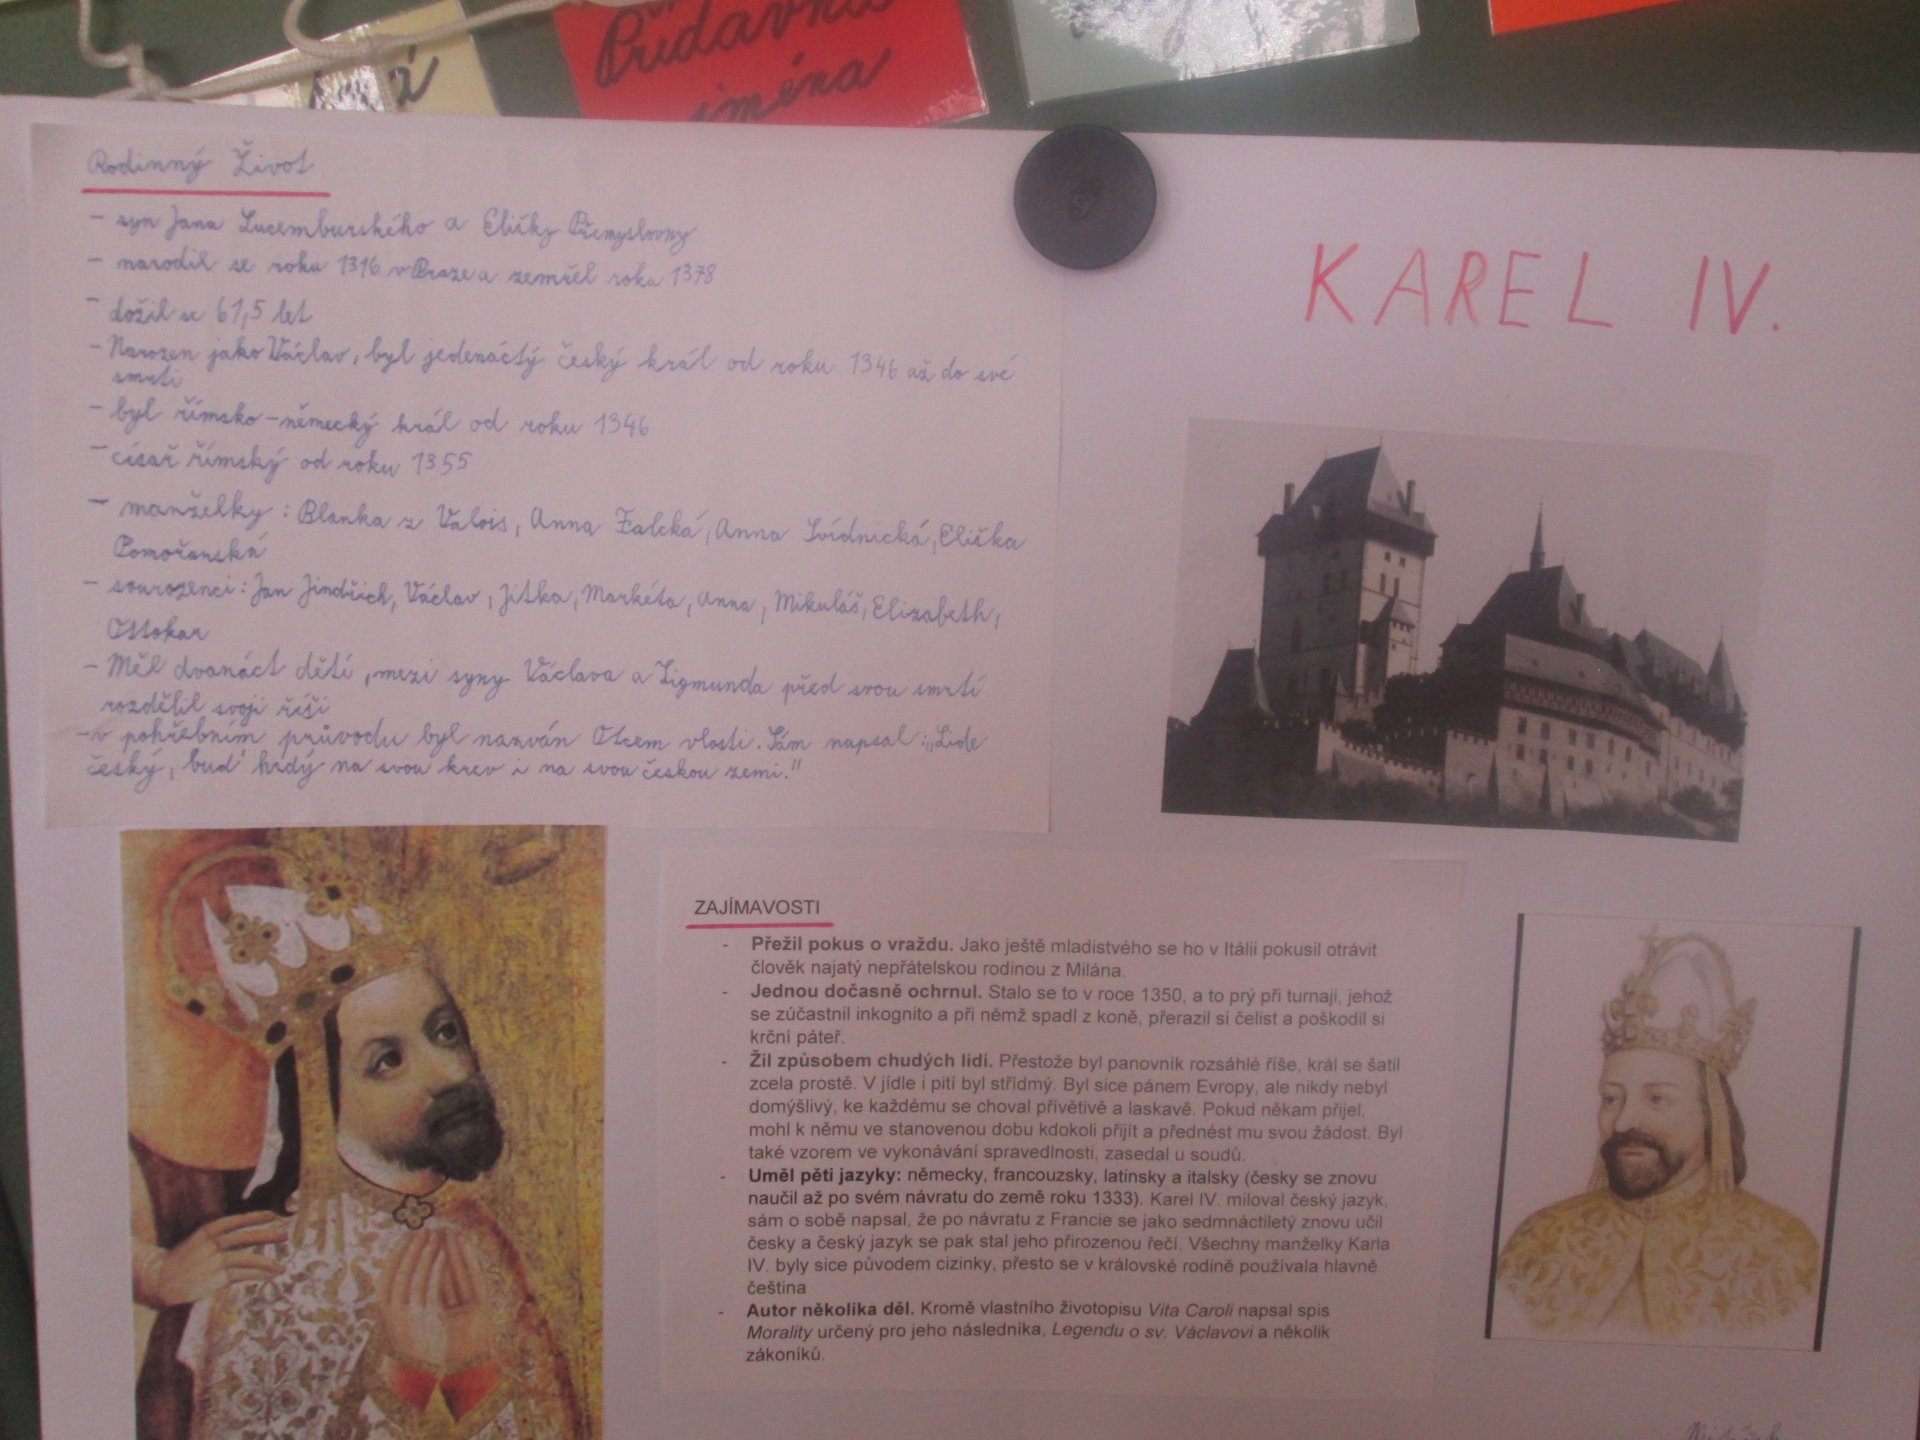 Přídavná
jména
Rodinný Život
- syn Jana Lucemburského a Elišky Přemyslovny
- narodil se roku 1316 v Praze a zemřel roku 1378
- dožil se 61,5 let
- Narozen jako Václav, byl jedenáctý český král od roku 1346 až do své
smrti
- byl římsko-německý král od roku 1346
- císař římský od roku 1355
- manželky: Blanka z Valois, Anna Falcká, Anna Svídnická, Eliška
Pomořanská
- sourozenci: Jan Jindřich, Václav, Jitka, Markéta, Anna, Mikuláš, Elizabeth,
Ottokar
- Měl dvanáct dětí, mezi syny Václava a Zigmunda před svou smrtí
rozdělil svoji říši
- v pohřebním průvodu byl nazván Otcem vlasti. Sám napsal: „Lide
český, buď hrdý na svou krev i na svou českou zemi."
KAREL IV.
ZAJÍMAVOSTI
- Přežil pokus o vraždu. Jako ještě mladistvého se ho v Itálii pokusil otrávit
člověk najatý nepřátelskou rodinou z Milána.
- Jednou dočasně ochrnul. Stalo se to v roce 1350, a to prý při turnaji, jehož
se zúčastnil inkognito a při němž spadl z koně, přerazil si čelist a poškodil si
krční páteř.
- Žil způsobem chudých lidí. Přestože byl panovník rozsáhlé říše, král se šatil
zcela prostě. V jídle i pití byl střídmý. Byl sice pánem Evropy, ale nikdy nebyl
domýšlivý, ke každému se choval přívětivě a laskavě. Pokud někam přijel,
mohl k němu ve stanovenou dobu kdokoli přijít a přednést mu svou žádost. Byl
také vzorem ve vykonávání spravedlnosti, zasedal u soudů.
- Uměl pěti jazyky: německy, francouzsky, latinsky a italsky (česky se znovu
naučil až po svém návratu do země roku 1333). Karel IV. miloval český jazyk,
sám o sobě napsal, že po návratu z Francie se jako sedmnáctiletý znovu učil
česky a český jazyk se pak stal jeho přirozenou řečí. Všechny manželky Karla
IV. byly sice původem cizinky, přesto se v královské rodině používala hlavně
čeština
- Autor několika děl. Kromě vlastního životopisu Vita Caroli napsal spis
Morality určený pro jeho následníka, Legendu o sv. Václavovi a několik
zákoníků.